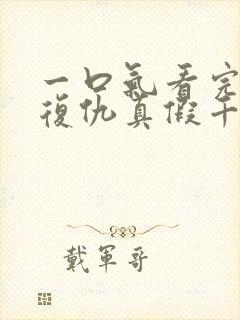 一口氣看完
復仇真假千
戴軍哥